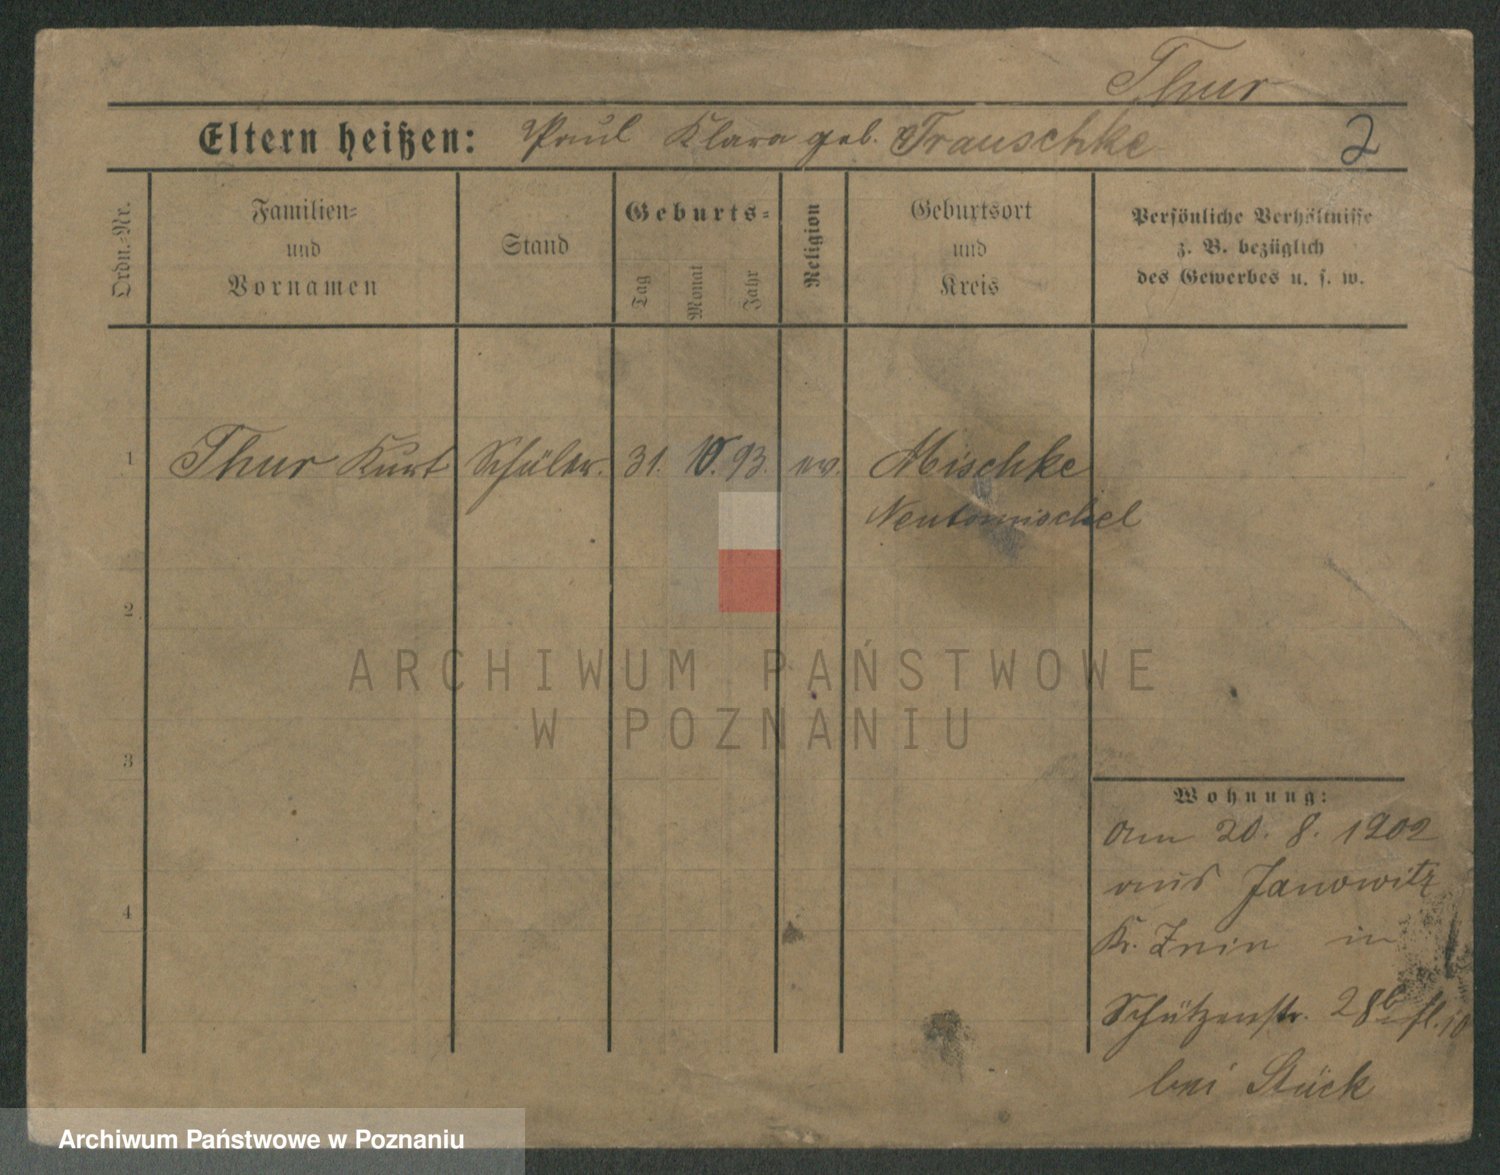 Thur
Eltern heißen: Paul Klara geb. Trauschke 2
Ordn.-Nr.
Familien-
und
Vornamen
Stand
Geburts-
Tag
Monat
Jahr
Religion
Geburtsort
und
Kreis
Persönliche Verhältnisse
z. B. bezüglich
des Gewerbes u. s. w.
1 Thur Kurt Schüler. 31. 10. 93. ev. Mischke
Neutomischel
2
ARCHIWUM PAŃSTWOWE
W POZNANIU
3
Wohnung:
am 20. 8. 1902
aus Janowitz
4
Kr. Znin in
Schützenstr. 28b
bei Stück
Archiwum Państwowe w Poznaniu